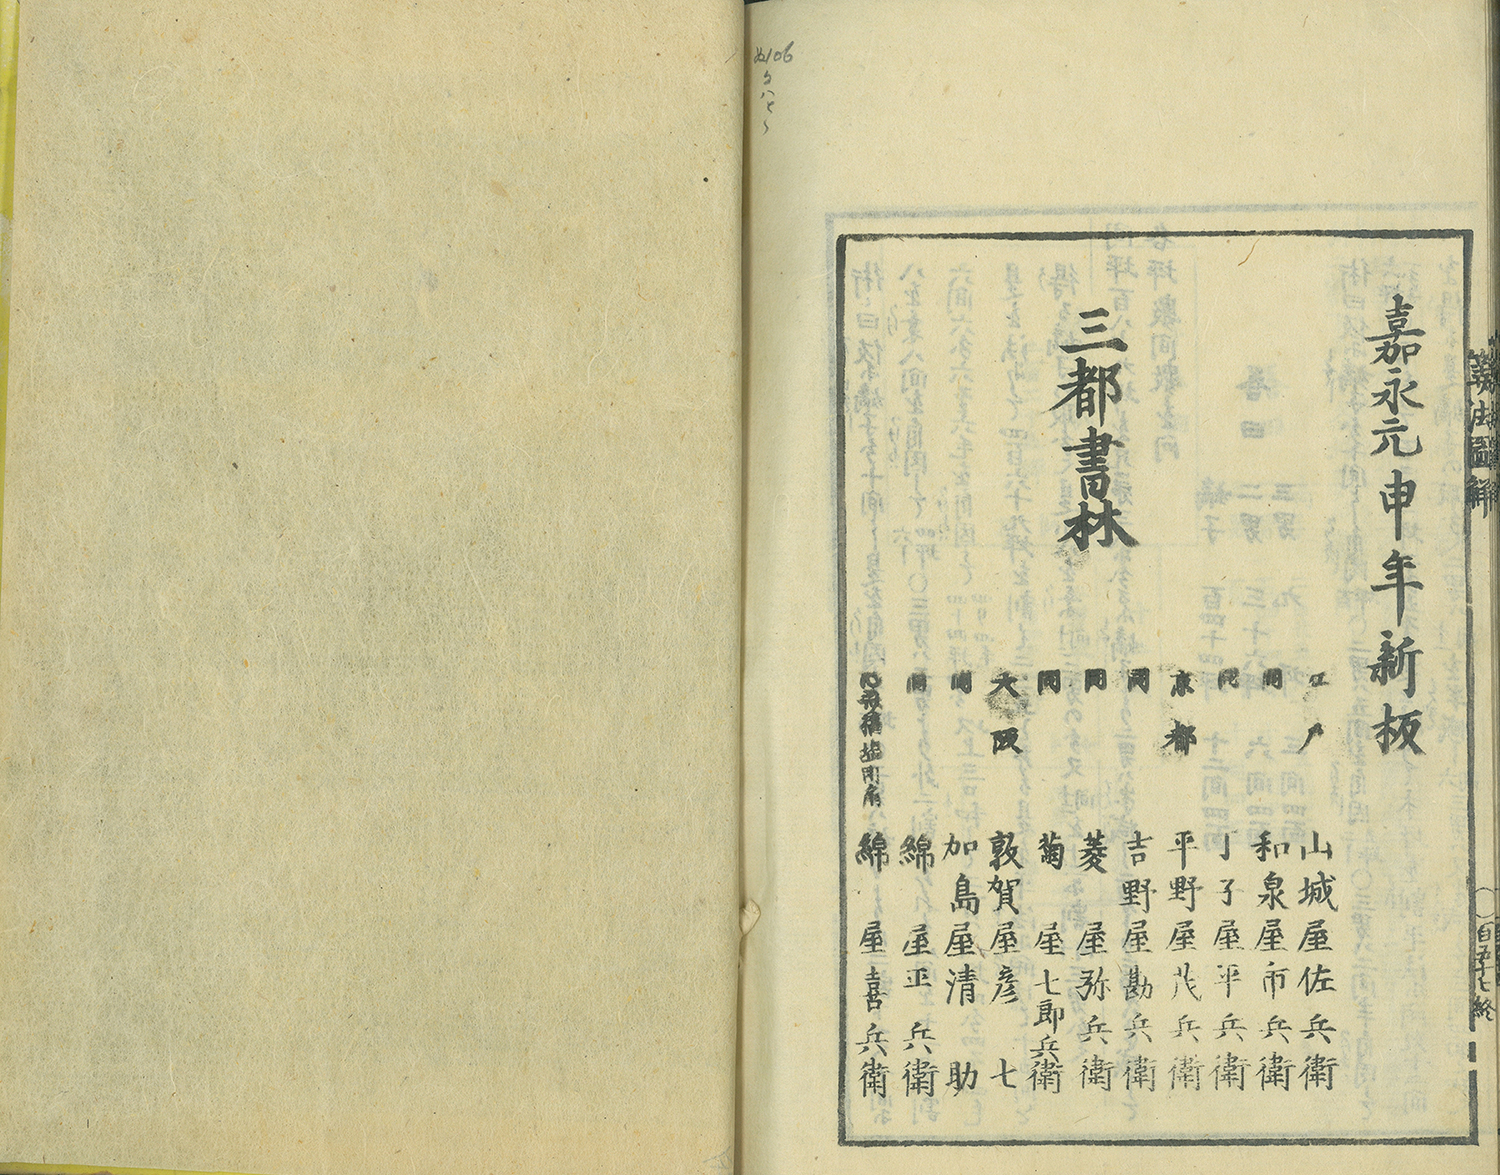 嘉永元申年新板
三都書林
江戸 山城屋佐兵衛
同 和泉屋市兵衛
同 丁子屋平兵衛
京都 平野屋茂兵衛
同 吉野屋勘兵衛
同 菱屋弥兵衛
同 菊屋七郎兵衛
大阪 敦賀屋彦七
同 加島屋清助
同 綿屋正兵衛
綿屋喜兵衛
算法図解
百五十七終
106